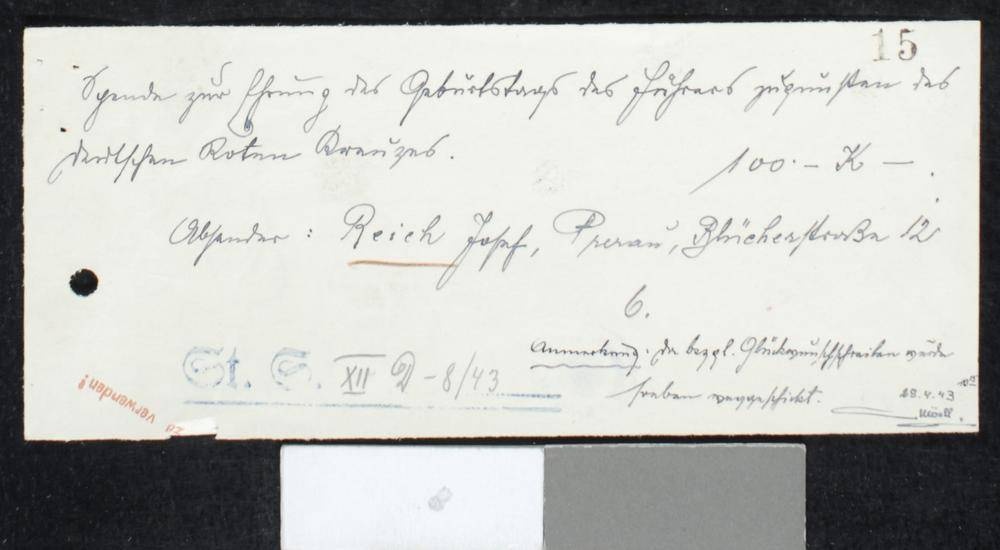 15
Spende zur Ehrung des Geburtstags des Führers zugunsten des
deutschen Roten Kreuzes.
100.– K –.
Absender: Reich Josef, Prerau, Blücherstraße 12
6.
Anmerkung: Der bezgl. Glückwunschschreiben wurde
soeben weggeschickt.
St. S. XII D – 8/43
28.4.43
zu verwenden!